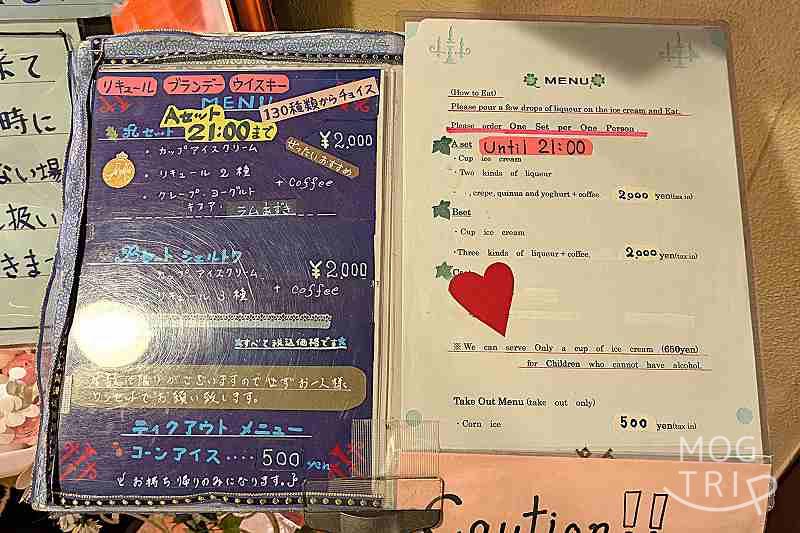 来て
時に
ない場
扱い
きま
リキュール ブランデー ウイスキー
MENU
130種類からチョイス
Aセット
21:00まで
セット
¥2,000
ぜったいおすすめ
・カップアイスクリーム
・リキュール 2種
・クレープ・ヨーグルト
+ Coffee
キヌア・ラムあずき
¥2,000
カップアイスクリーム
リキュール 3種
+ Coffee
すべて税込価格です
お願い致します。
テイクアウト メニュー
コーンアイス ‥‥ 500 yen
お持ち帰りのみになります。♪
MENU
(How to Eat)
Please pour a few drops of liqueur on the ice cream and Eat.
Please order One Set per One Person
A set Until 21:00
・Cup ice cream
・Two kinds of liqueur
, crepe, quinua and yoghurt + coffee 2,000 yen(tax in)
Bset
・Cup ice cream
・Three kinds of liqueur + coffee. 2,000 yen(tax in)
※We can serve Only a cup of ice cream (650yen)
for Children who cannot have alcohol.
Take Out Menu (take out only)
・Corn ice 500 yen(tax in)
Caution!!
MOG
TRIP